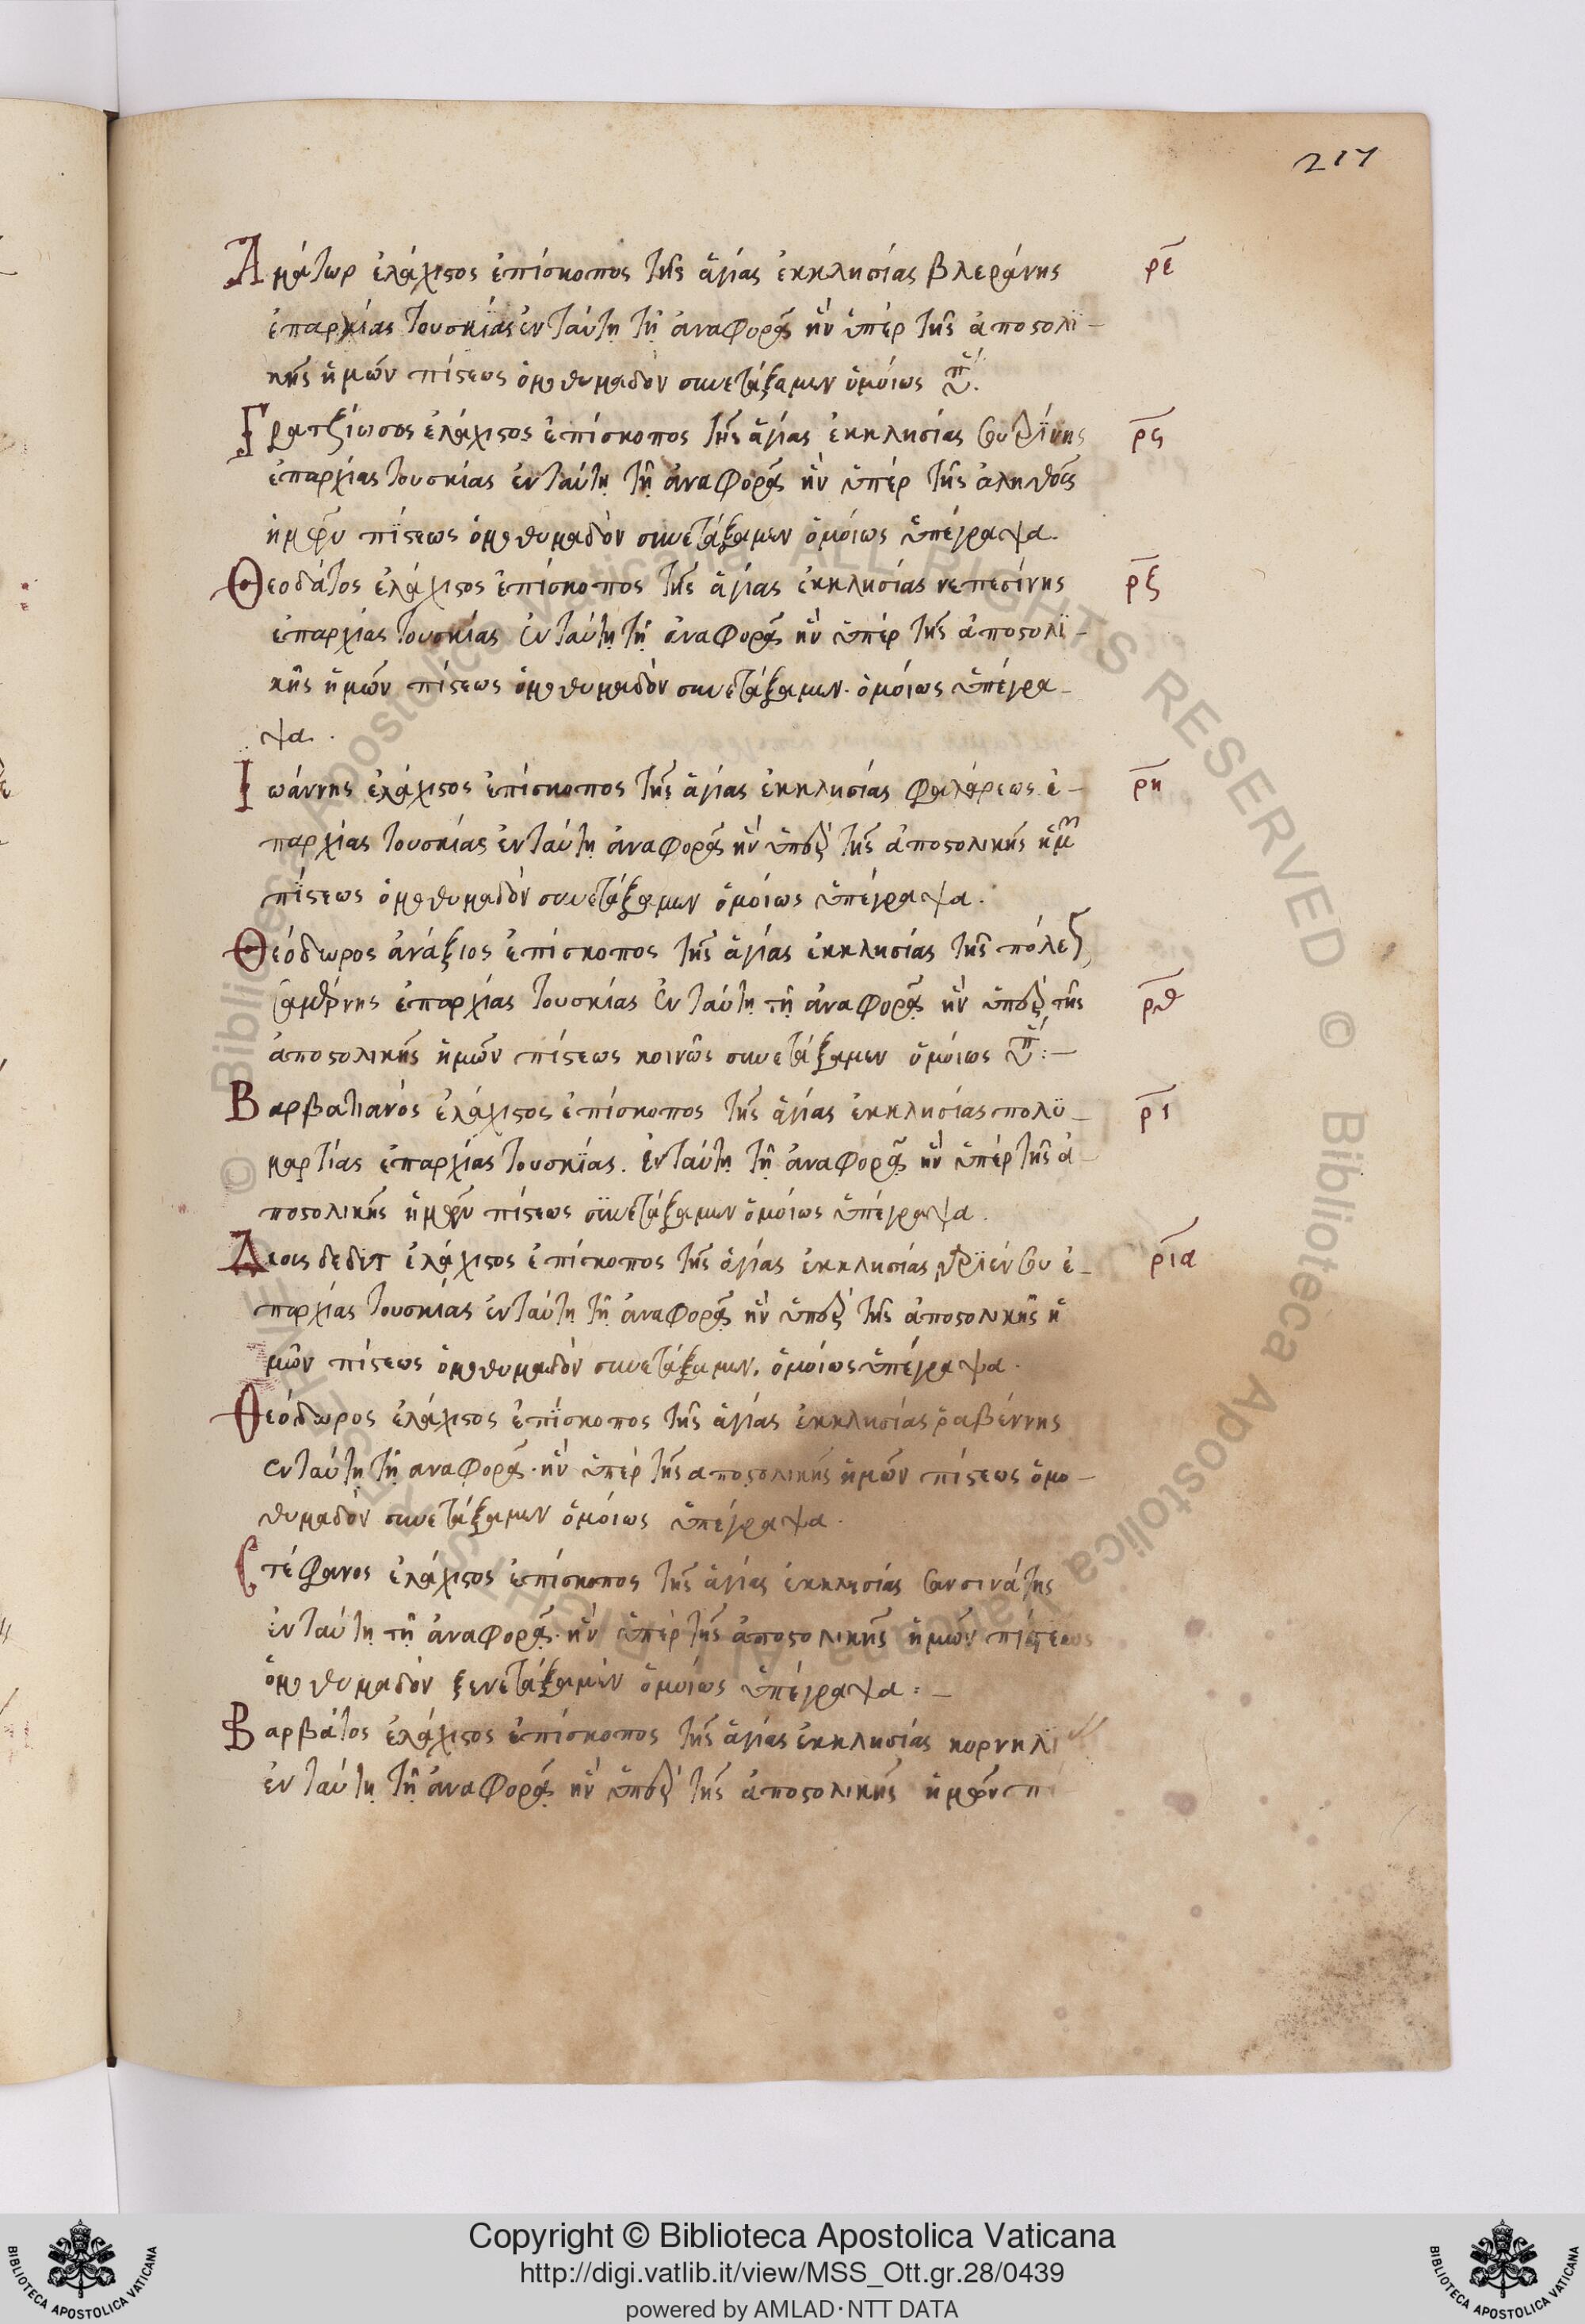 217
Ἀμάτωρ ἐλάχιστος ἐπίσκοπος τῆς ἁγίας ἐκκλησίας βλεράνης ρε
ἐπαρχίας τουσκίας ἐν ταύτῃ τῇ ἀναφορᾷ ἣν ὑπὲρ τῆς ἀποστολϊ-
κῆς ἡμῶν πίστεως ὁμοθυμαδὸν συνετάξαμεν ὁμοίως ὑπ.
Γρατζίωσος ἐλάχιστος ἐπίσκοπος τῆς ἁγίας ἐκκλησίας σουτρΐνης ρς
ἐπαρχίας τουσκίας ἐν ταύτῃ τῇ ἀναφορᾷ ἣν ὑπὲρ τῆς ἀληθοῦς
ἡμῶν πίστεως ὁμοθυμαδὸν συνετάξαμεν ὁμοίως ὑπέγραψα.
Θεοδάτος ἐλάχιστος ἐπίσκοπος τῆς ἁγίας ἐκκλησίας νεπεσίνης ρζ
ἐπαρχίας τουσκίας ἐν ταύτῃ τῇ ἀναφορᾷ ἣν ὑπὲρ τῆς ἀποστολϊ-
κῆς ἡμῶν πίστεως ὁμοθυμαδὸν συνετάξαμεν. ὁμοίως ὑπέγρα-
ψα.
Ἰωάννης ἐλάχιστος ἐπίσκοπος τῆς ἁγίας ἐκκλησίας φαλάρεως ἐ- ρη
παρχίας τουσκίας ἐν ταύτῃ ἀναφορᾷ ἣν ὑπὲρ τῆς ἀποστολικῆς ἡμ
πίστεως ὁμοθυμαδὸν συνετάξαμεν ὁμοίως ὑπέγραψα.
Θεόδωρος ἀνάξιος ἐπίσκοπος τῆς ἁγίας ἐκκλησίας τῆς πόλε
ἐπαρχίας τουσκίας ἐν ταύτῃ τῇ ἀναφορᾷ ἣν ὑπὲρ τῆς ρθ
ἀποστολικῆς ἡμῶν πίστεως κοινῶς συνετάξαμεν ὁμοίως ὑπ:—
Βαρβατιανός ἐλάχιστος ἐπίσκοπος τῆς ἁγίας ἐκκλησίας πολϋ- ρι
μαρτίας ἐπαρχίας τουσκΐας. ἐν ταύτῃ τῇ ἀναφορᾷ ἣν ὑπὲρ τῆς ἀ-
ποστολικῆς ἡμῶν πίστεως συνετάξαμεν ὁμοίως ὑπέγραψα.
Δεους δεδιτ ἐλάχιστος ἐπίσκοπος τῆς ἁγίας ἐκκλησίας ἐ- ρια
παρχίας τουσκίας ἐν ταύτῃ τῇ ἀναφορᾷ ἣν ὑπὲρ τῆς ἀποστολικῆς ἡ
μῶν πίστεως ὁμοθυμαδὸν συνετάξαμεν. ὁμοίως ὑπέγραψα.
Θεόδωρος ἐλάχιστος ἐπίσκοπος τῆς ἁγίας ἐκκλησίας ῥαβέννης
ἐν ταύτῃ τῇ αναφορᾷ. ἣν ὑπὲρ τῆς αποστολικῆς ἡμῶν πίστεως ὁμο-
θυμαδὸν συνετάξαμεν ὁμοίως ὑπέγραψα.
Στέφανος ἐλάχιστος ἐπίσκοπος τῆς ἁγίας ἐκκλησίας σαρσινάτης
ἐν ταύτῃ τῇ ἀναφορᾷ. ἣν ὑπὲρ τῆς ἀποστολικῆς ἡμῶν πίστεως
ὁμοθυμαδὸν ξενετάξαμεν ὁμοίως ὑπέγραψα:—
Βαρβάτος ἐλάχιστος ἐπίσκοπος τῆς ἁγίας ἐκκλησίας κορνηλϊ
ἐν ταύτῃ τῇ ἀναφορᾷ ἣν ὑπὲρ τῆς ἀποστολικῆς ἡμῶν πί
© Biblioteca Apostolica Vaticana ALL RIGHTS RESERVED
Copyright © Biblioteca Apostolica Vaticana
http://digi.vatlib.it/view/MSS_Ott.gr.28/0439
powered by AMLAD·NTT DATA
BIBLIOTECA APOSTOLICA VATICANA
BIBLIOTECA APOSTOLICA VATICANA